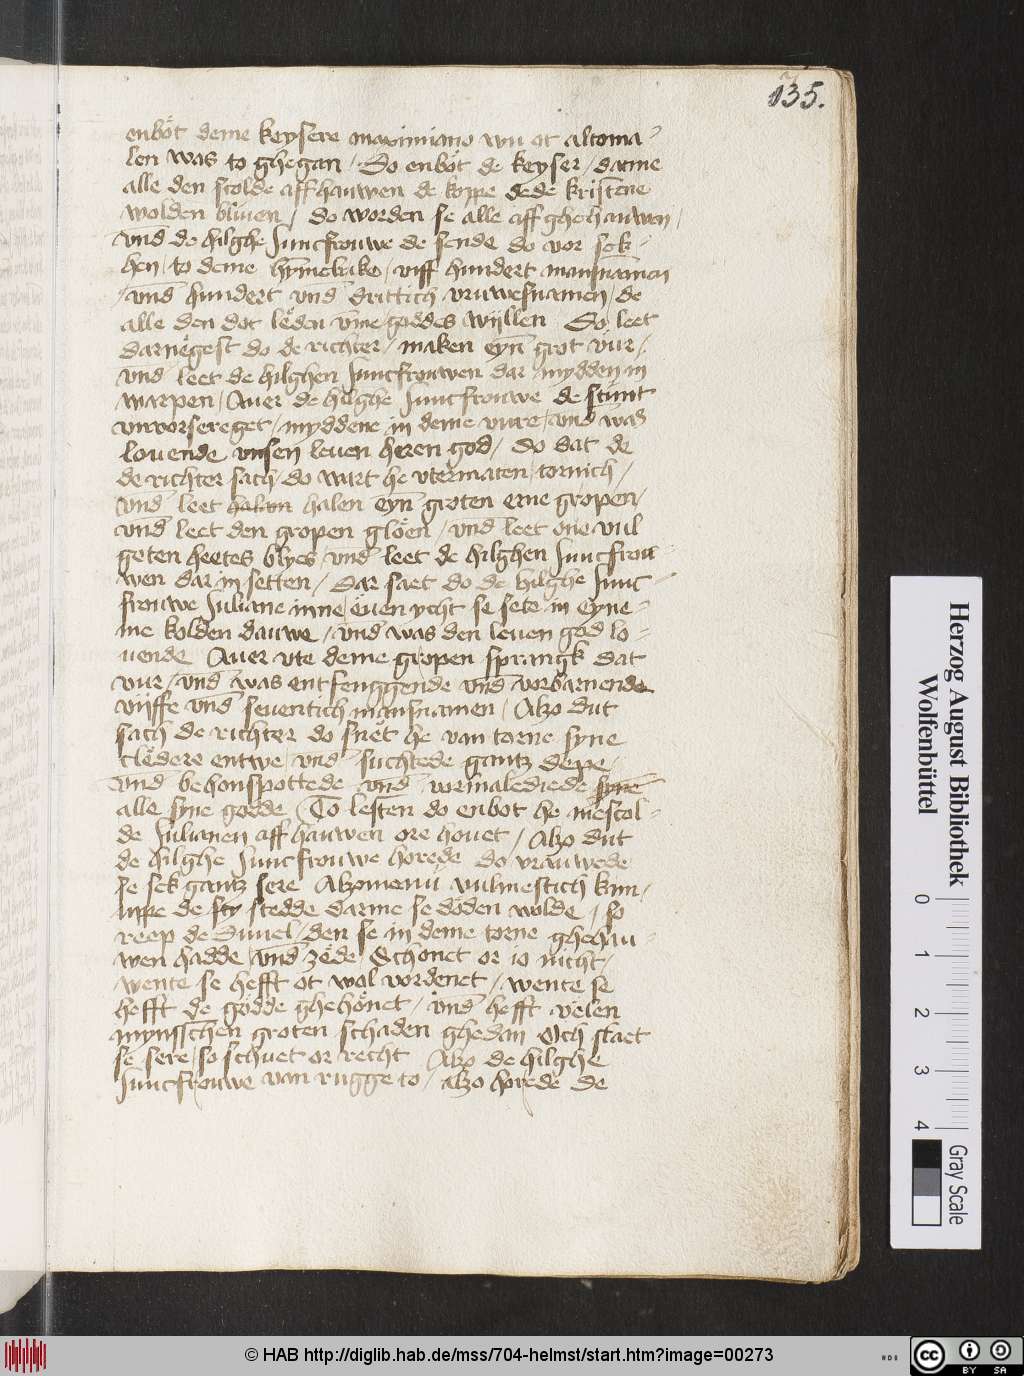 135.
enböt deme keysere maximiano wu ot altoma
len was to ghegan / Do enböt de keyser / darme
alle den scolde aff hauwen de koppe dede kristene
wolden bliuen / do worden se alle aff ghehauwen /
vnd̄ de hilghe Juncfrouwe de sende do vor sek-
hen / to deme hȳmelrike / viff hundert mansnamen
/ vnd̄ hundert vnd̄ drittich vruwesnamen / de
alle den dot lëden v̄me goddes wÿllen Do leet
darnëgest do de richter / maken eyn̄ grot vür /
vnd̄ leet de hilghen Juncfrouwen dar mydden in
warpen / Auer de hilghe Juncfrouwe de stünt
vnvorsereget / myddene in deme vure / vnd̄ was
louende vnsen leuen heren god / Do dat de
de richter sach / do wart he vtermaten tornich /
vnd̄ leet halen eyn̄ groten erne gropen /
vnd̄ leet den gropen glöen / vnd̄ leet one vul
geten heetes blyes / vnd̄ leet de hilghen Juncfrou-
wen dar in setten / Dar saet do de hilghe Junc-
frouwe Juliane inne / euen ycht se sete in eyne-
me kolden dauwe / vnd̄ was den leuen god lo-
uende Auer vte deme gropen sprangk dat
vur / vnd̄ was entfenggende vnd̄ vorbarnende
vÿffe vnd̄ seuentich mansnamen / Alzo dut
sach de richter do snët he van torne syne
clëdere entwe / vnd̄ suchtede gantz depe /
vnd̄ behonspottede vnd̄ vormalediede syne
alle syne gödde / To lesten do enbot he me scol-
de Julianen aff hauwen ore houet / Alzo dut
de hilghe Juncfrouwe horede do vrauwede
se sek gantz sere Alzomenü vulmestich kun /
uppe de sty stedde darme se döden wolde / so
reep de Duuel / den se in deme torne ghehau-
wen hadde / vnd̄ zëde Schonet or io nicht /
wente se hefft ot wol vordenet / wente se
hefft de gödde ghehönet / vnd̄ hefft velen
mynsschen groten schaden ghedan Och slaet
se sere / so schuet or recht Alzo de hilghe
Juncfrouwe van rugge to / alzo horede de
Herzog August Bibliothek
Wolfenbüttel
0 1 2 3 4
Gray Scale
© HAB http://diglib.hab.de/mss/704-helmst/start.htm?image=00273
cc BY SA